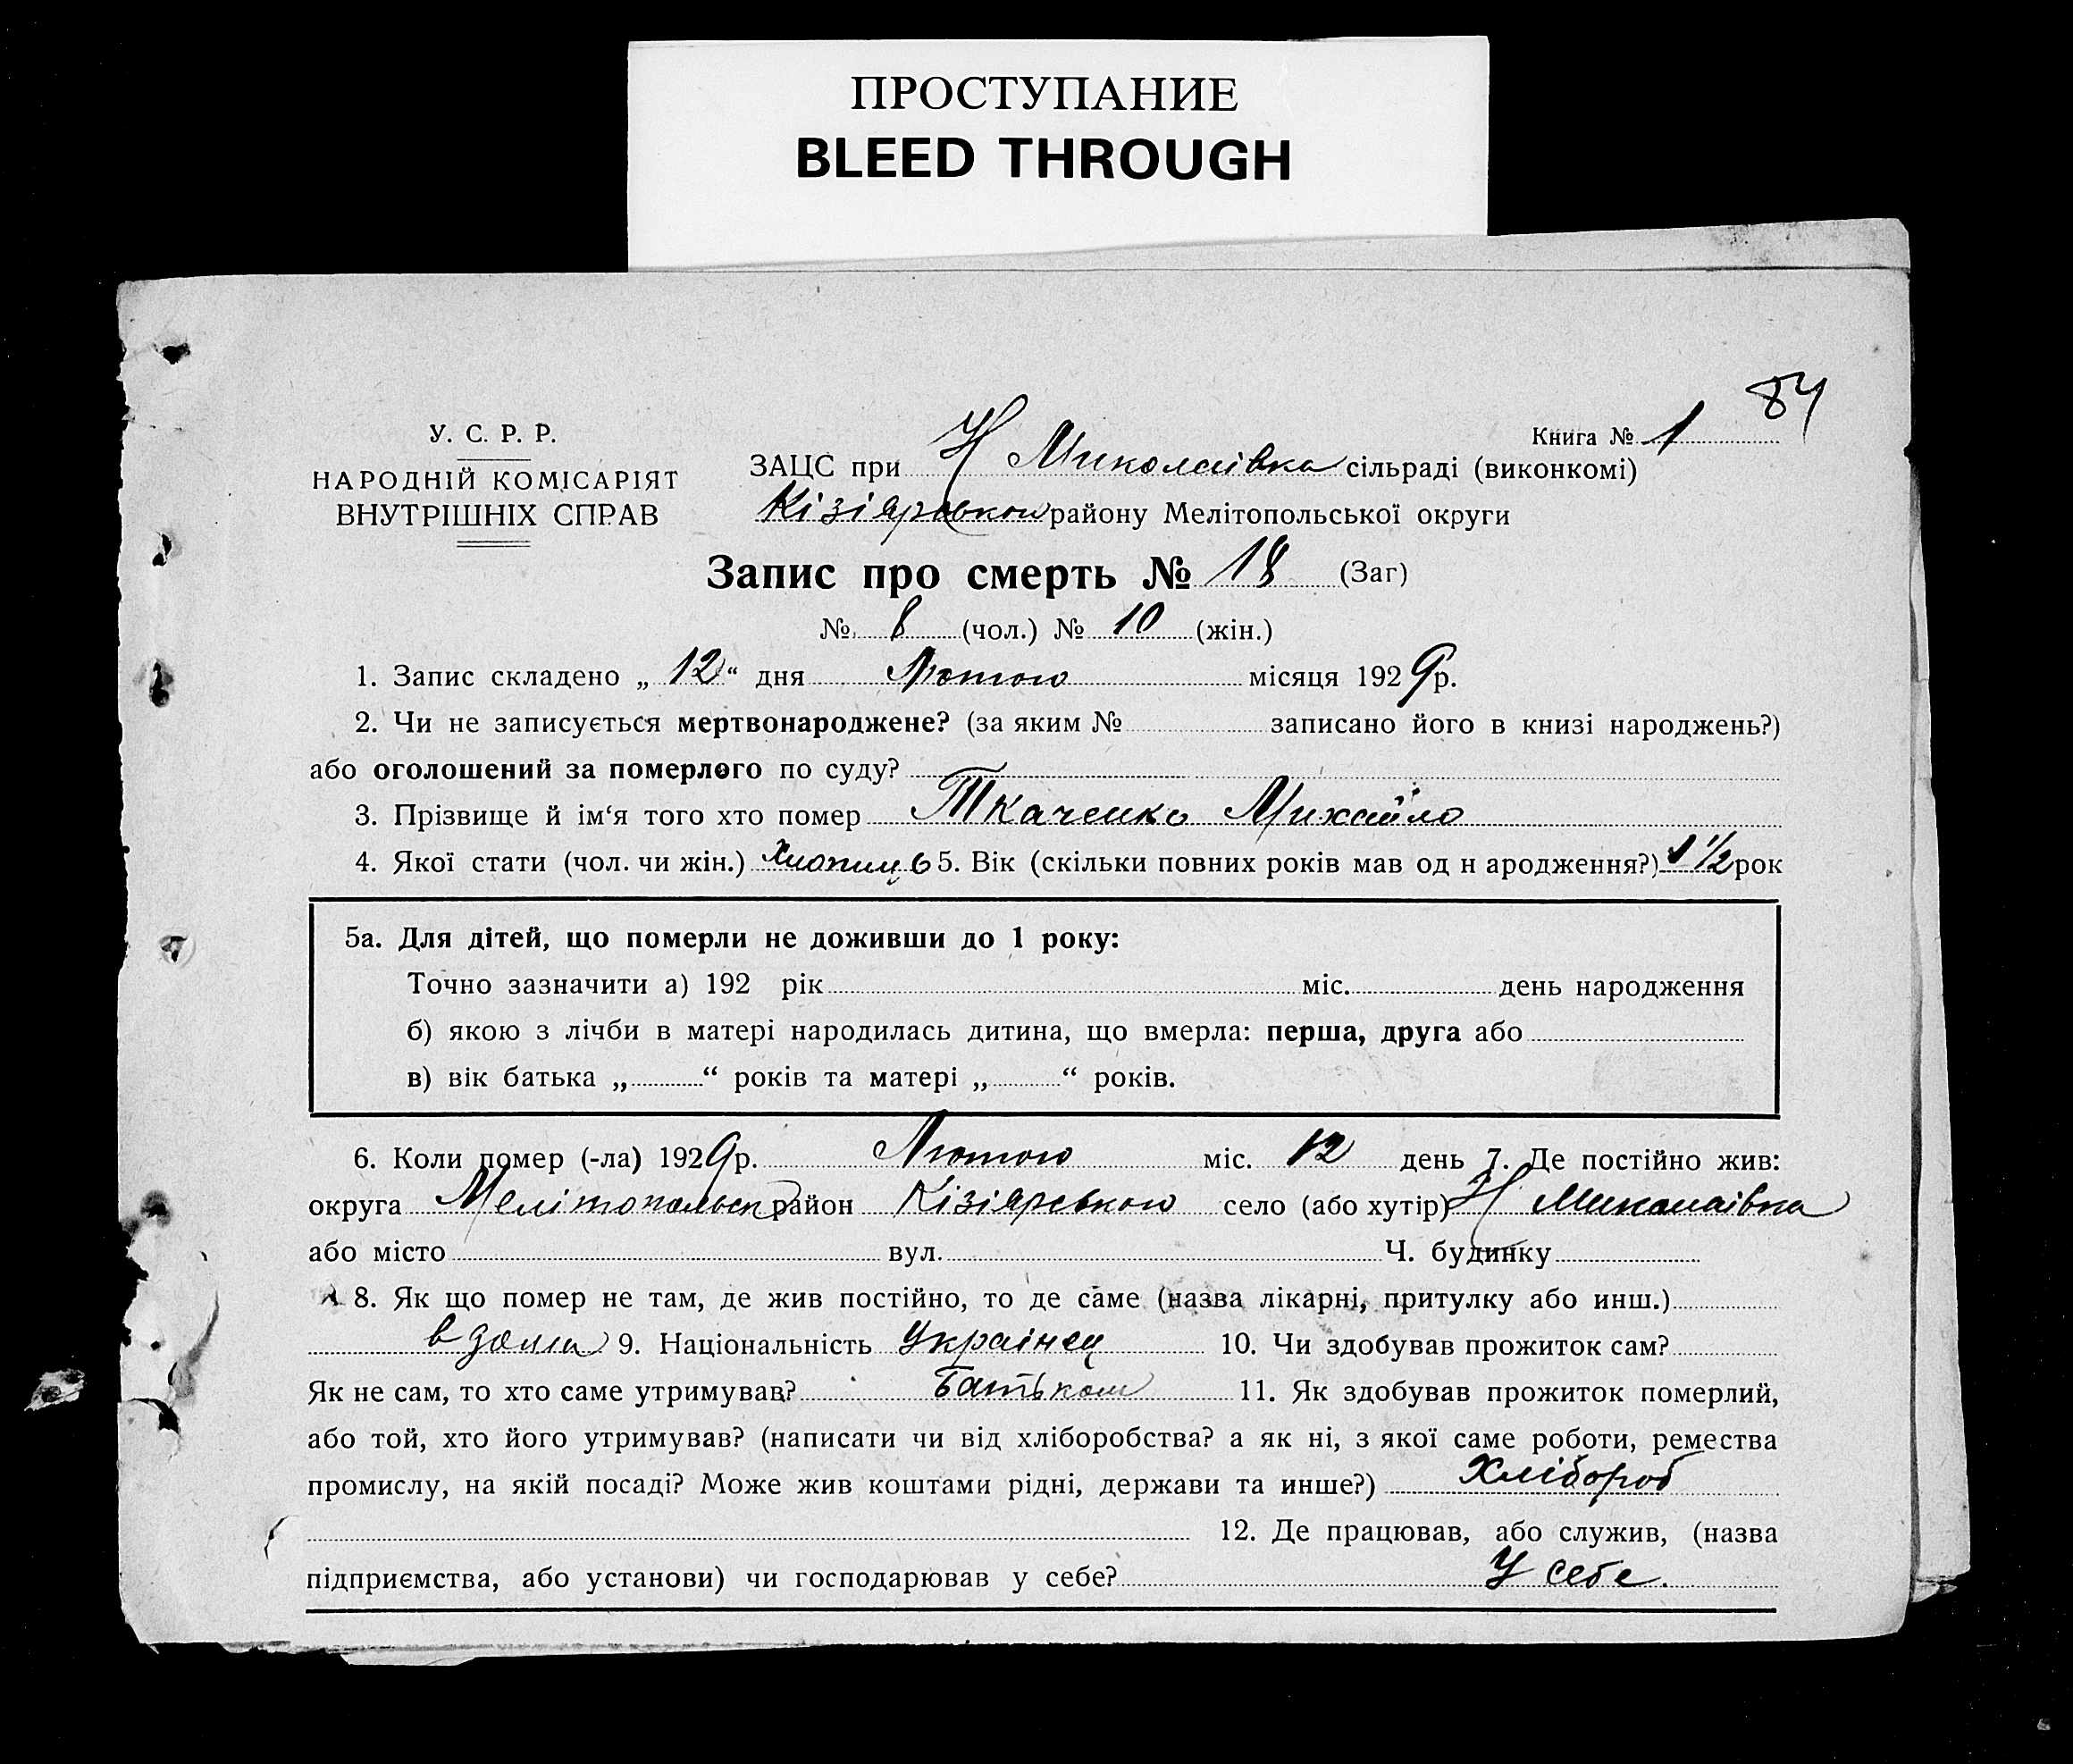 ПРОСТУПАНИЕ
BLEED THROUGH
84
У. С. Р. Р.
НАРОДНІЙ КОМІСАРІЯТ
ВНУТРІШНІХ СПРАВ
Книга № 1
ЗАЦС при Н Миколаівка сільраді (виконкомі)
Кізіярської району Мелітопольської округи
Запис про смерть № 18 (Заг)
№ 8 (чол.) № 10 (жін.)
1. Запис складено „ 12 “ дня Лютого місяця 1929р.
2. Чи не записується мертвонароджене? (за яким № записано його в книзі народжень?)
або оголошений за померлого по суду?
3. Прізвище й ім‘я того хто помер Ткаченко Михайло
4. Якої стати (чол. чи жін.) Хлопиць 5. Вік (скільки повних років мав од н ародження?) 1 1/2 рок
5а. Для дітей, що померли не доживши до 1 року:
Точно зазначити а) 192 рік міс. день народження
б) якою з лічби в матері народилась дитина, що вмерла: перша, друга або
в) вік батька „ “ років та матері „ “ років.
6. Коли помер (-ла) 1929р. Лютого міс. 12 день 7. Де постійно жив:
округа Мелітопольськ район Кізіярського село (або хутір) Н Миколаівка
або місто вул. Ч. будинку
8. Як що помер не там, де жив постійно, то де саме (назва лікарні, притулку або инш.)
в дома 9. Національність Украінец 10. Чи здобував прожиток сам?
Як не сам, то хто саме утримував? Батьком 11. Як здобував прожиток померлий,
або той, хто його утримував? (написати чи від хліборобства? а як ні, з якої саме роботи, ремества
промислу, на якій посаді? Може жив коштами рідні, держави та инше?) Хлібороб
12. Де працював, або служив, (назва
підприємства, або установи) чи господарював у себе? У себе.